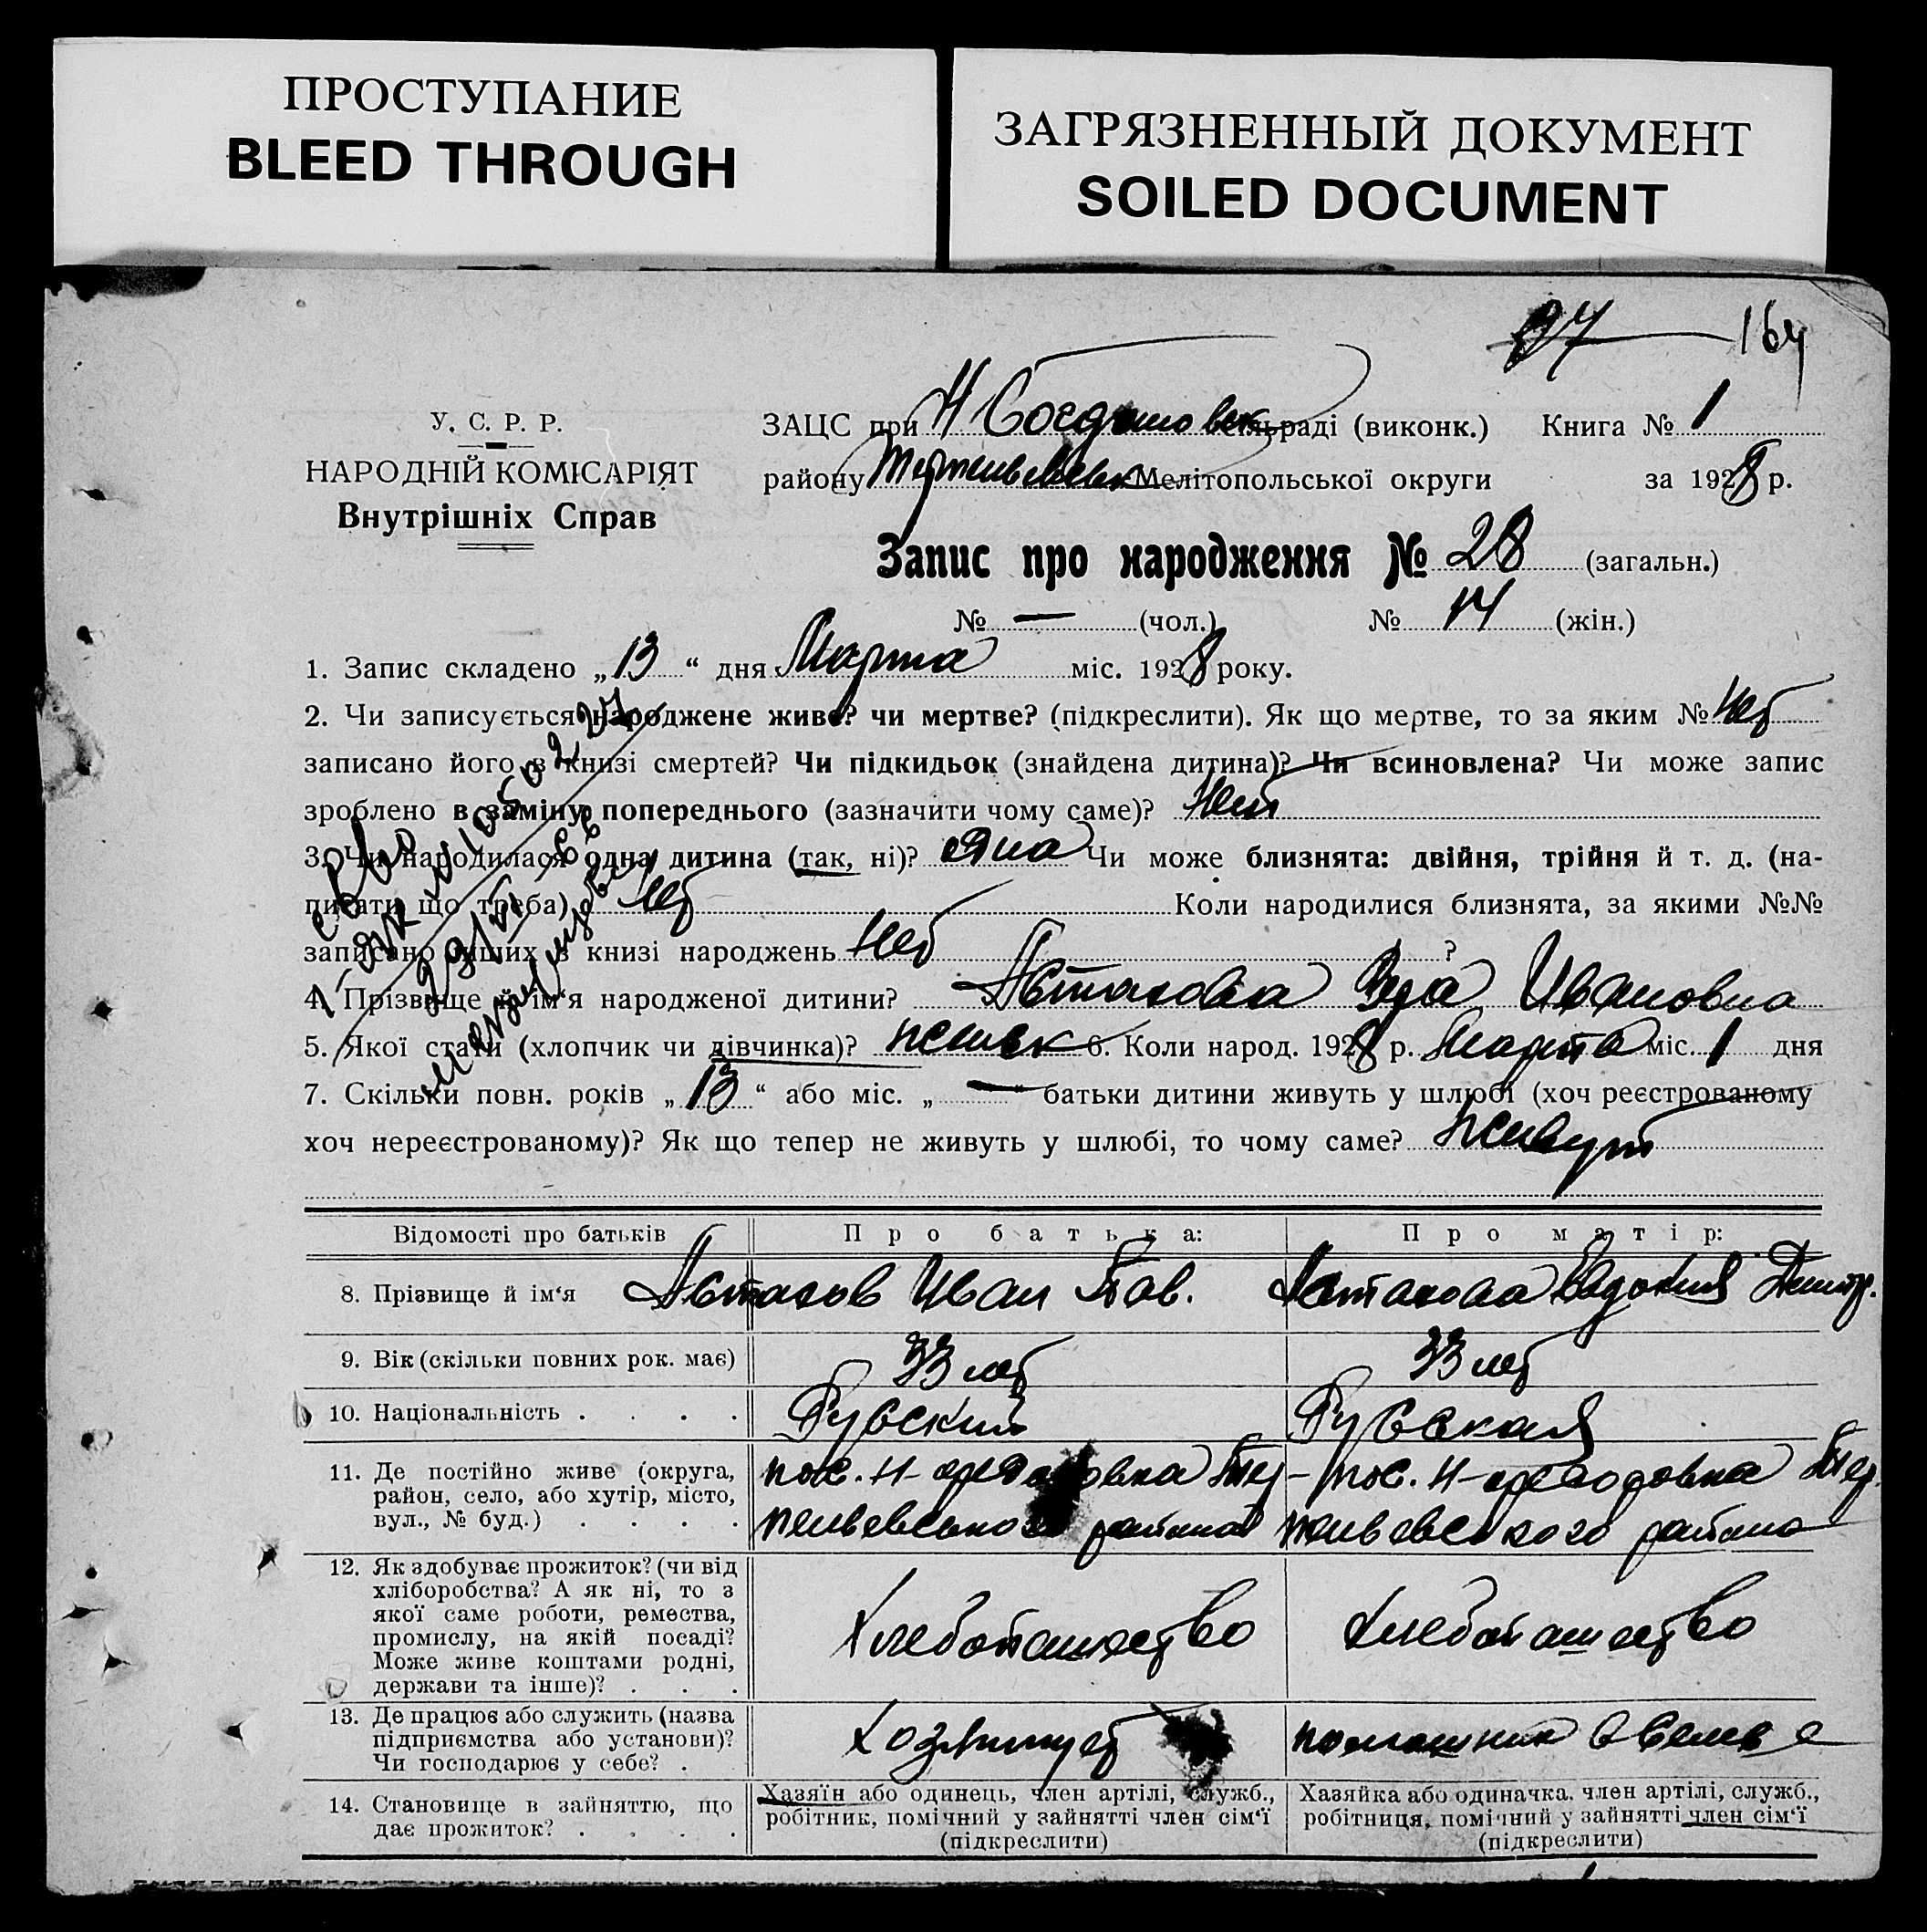 ПРОСТУПАНИЕ
BLEED THROUGH
ЗАГРЯЗНЕННЫЙ ДОКУМЕНТ
SOILED DOCUMENT
164
У. С. Р. Р.
НАРОДНІЙ КОМІСАРІЯТ
Внутрішніх Справ
ЗАЦС при Н сільраді (виконк.) Книга № 1
району Мелітопольської округи за 1928 р.
Запис про народження № 28 (загальн.)
№ — (чол.) № 14 (жін.)
1. Запис складено „13“ дня Марта міс. 1928 року.
2. Чи записується народжене живе? чи мертве? (підкреслити). Як що мертве, то за яким № нет
записано його в книзі смертей? Чи підкидьок (знайдена дитина)? Чи всиновлена? Чи може запис
зроблено в заміну попереднього (зазначити чому саме)? нет
3. Чи народилася одна дитина (так, ні)? одна Чи може близнята: двійня, трійня й т. д. (на-
писати що треба) нет Коли народилися близнята, за якими №№
записано інших в книзі народжень нет ?
4. Прізвище й ім'я народженої дитини? Астахова Ивановна
5. Якої стати (хлопчик чи дівчинка)? женск 6. Коли народ. 1928 р. Марта міс. 1 дня
7. Скільки повн. років „13“ або міс. „—“ батьки дитини живуть у шлюбі (хоч реєстрованому
хоч нереєстрованому)? Як що тепер не живуть у шлюбі, то чому саме? живут
Відомості про батьків Про батька: Про матір:
8. Прізвище й ім'я Астахов Иван Пав. Астахова Евдокия Дмитр.
9. Вік (скільки повних рок. має) 33 лет 33 лет
10. Національність . . . . Русский Русская
11. Де постійно живе (округа, район, село, або хутір, місто, вул., № буд.) . . . . пос. Н- района пос. Н- района
12. Як здобуває прожиток? (чи від хліборобства? А як ні, то з якої саме роботи, ремества, промислу, на якій посаді? Може живе коштами родні, держави та інше)? . . . Хлебопашество Хлебопашество
13. Де працює або служить (назва підприємства або установи)? Чи господарює у себе? . помошник в семье
14. Становище в зайняттю, що дає прожиток? . . . . Хазяїн або одинець, член артілі, служб., робітник, помічний у зайнятті член сім'ї (підкреслити) Хазяйка або одиначка, член артілі, служб., робітниця, помічний у зайнятті член сім'ї (підкреслити)